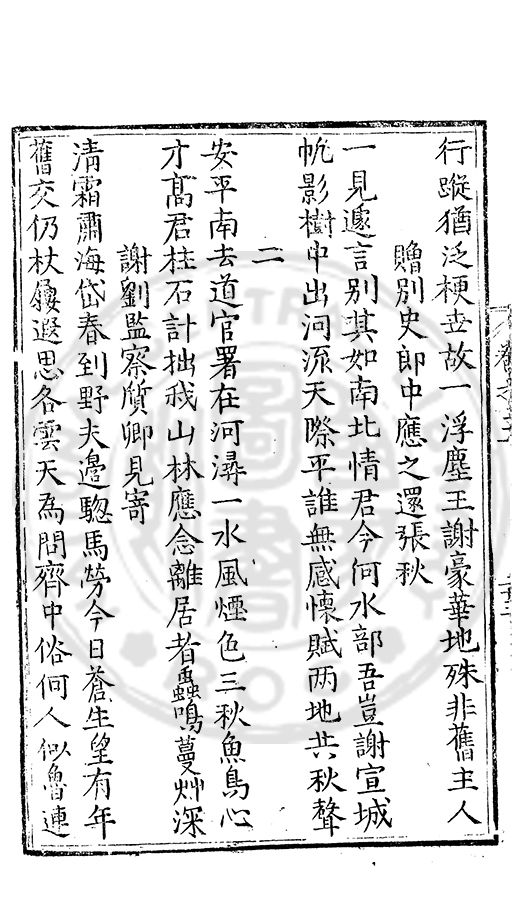 行蹤猶泛梗世故一浮塵王謝豪華地殊非舊主人
贈別史郎中應之還張秋
一見遽言別其如南北情君今何水部吾豈謝宣城
帆影樹中出河流天際平誰無感懷賦两地共秋聲
二
安平南去道官署在河潯一水風煙色三秋魚鳥心
才髙君柱石計拙我山林應念離居者蟲鳴蔓艸深
謝劉監察質卿見寄
清霜肅海岱春到野夫邊驄馬勞今日蒼生望有年
舊交仍杖屨遐思各雲天為問齊中俗何人似魯連